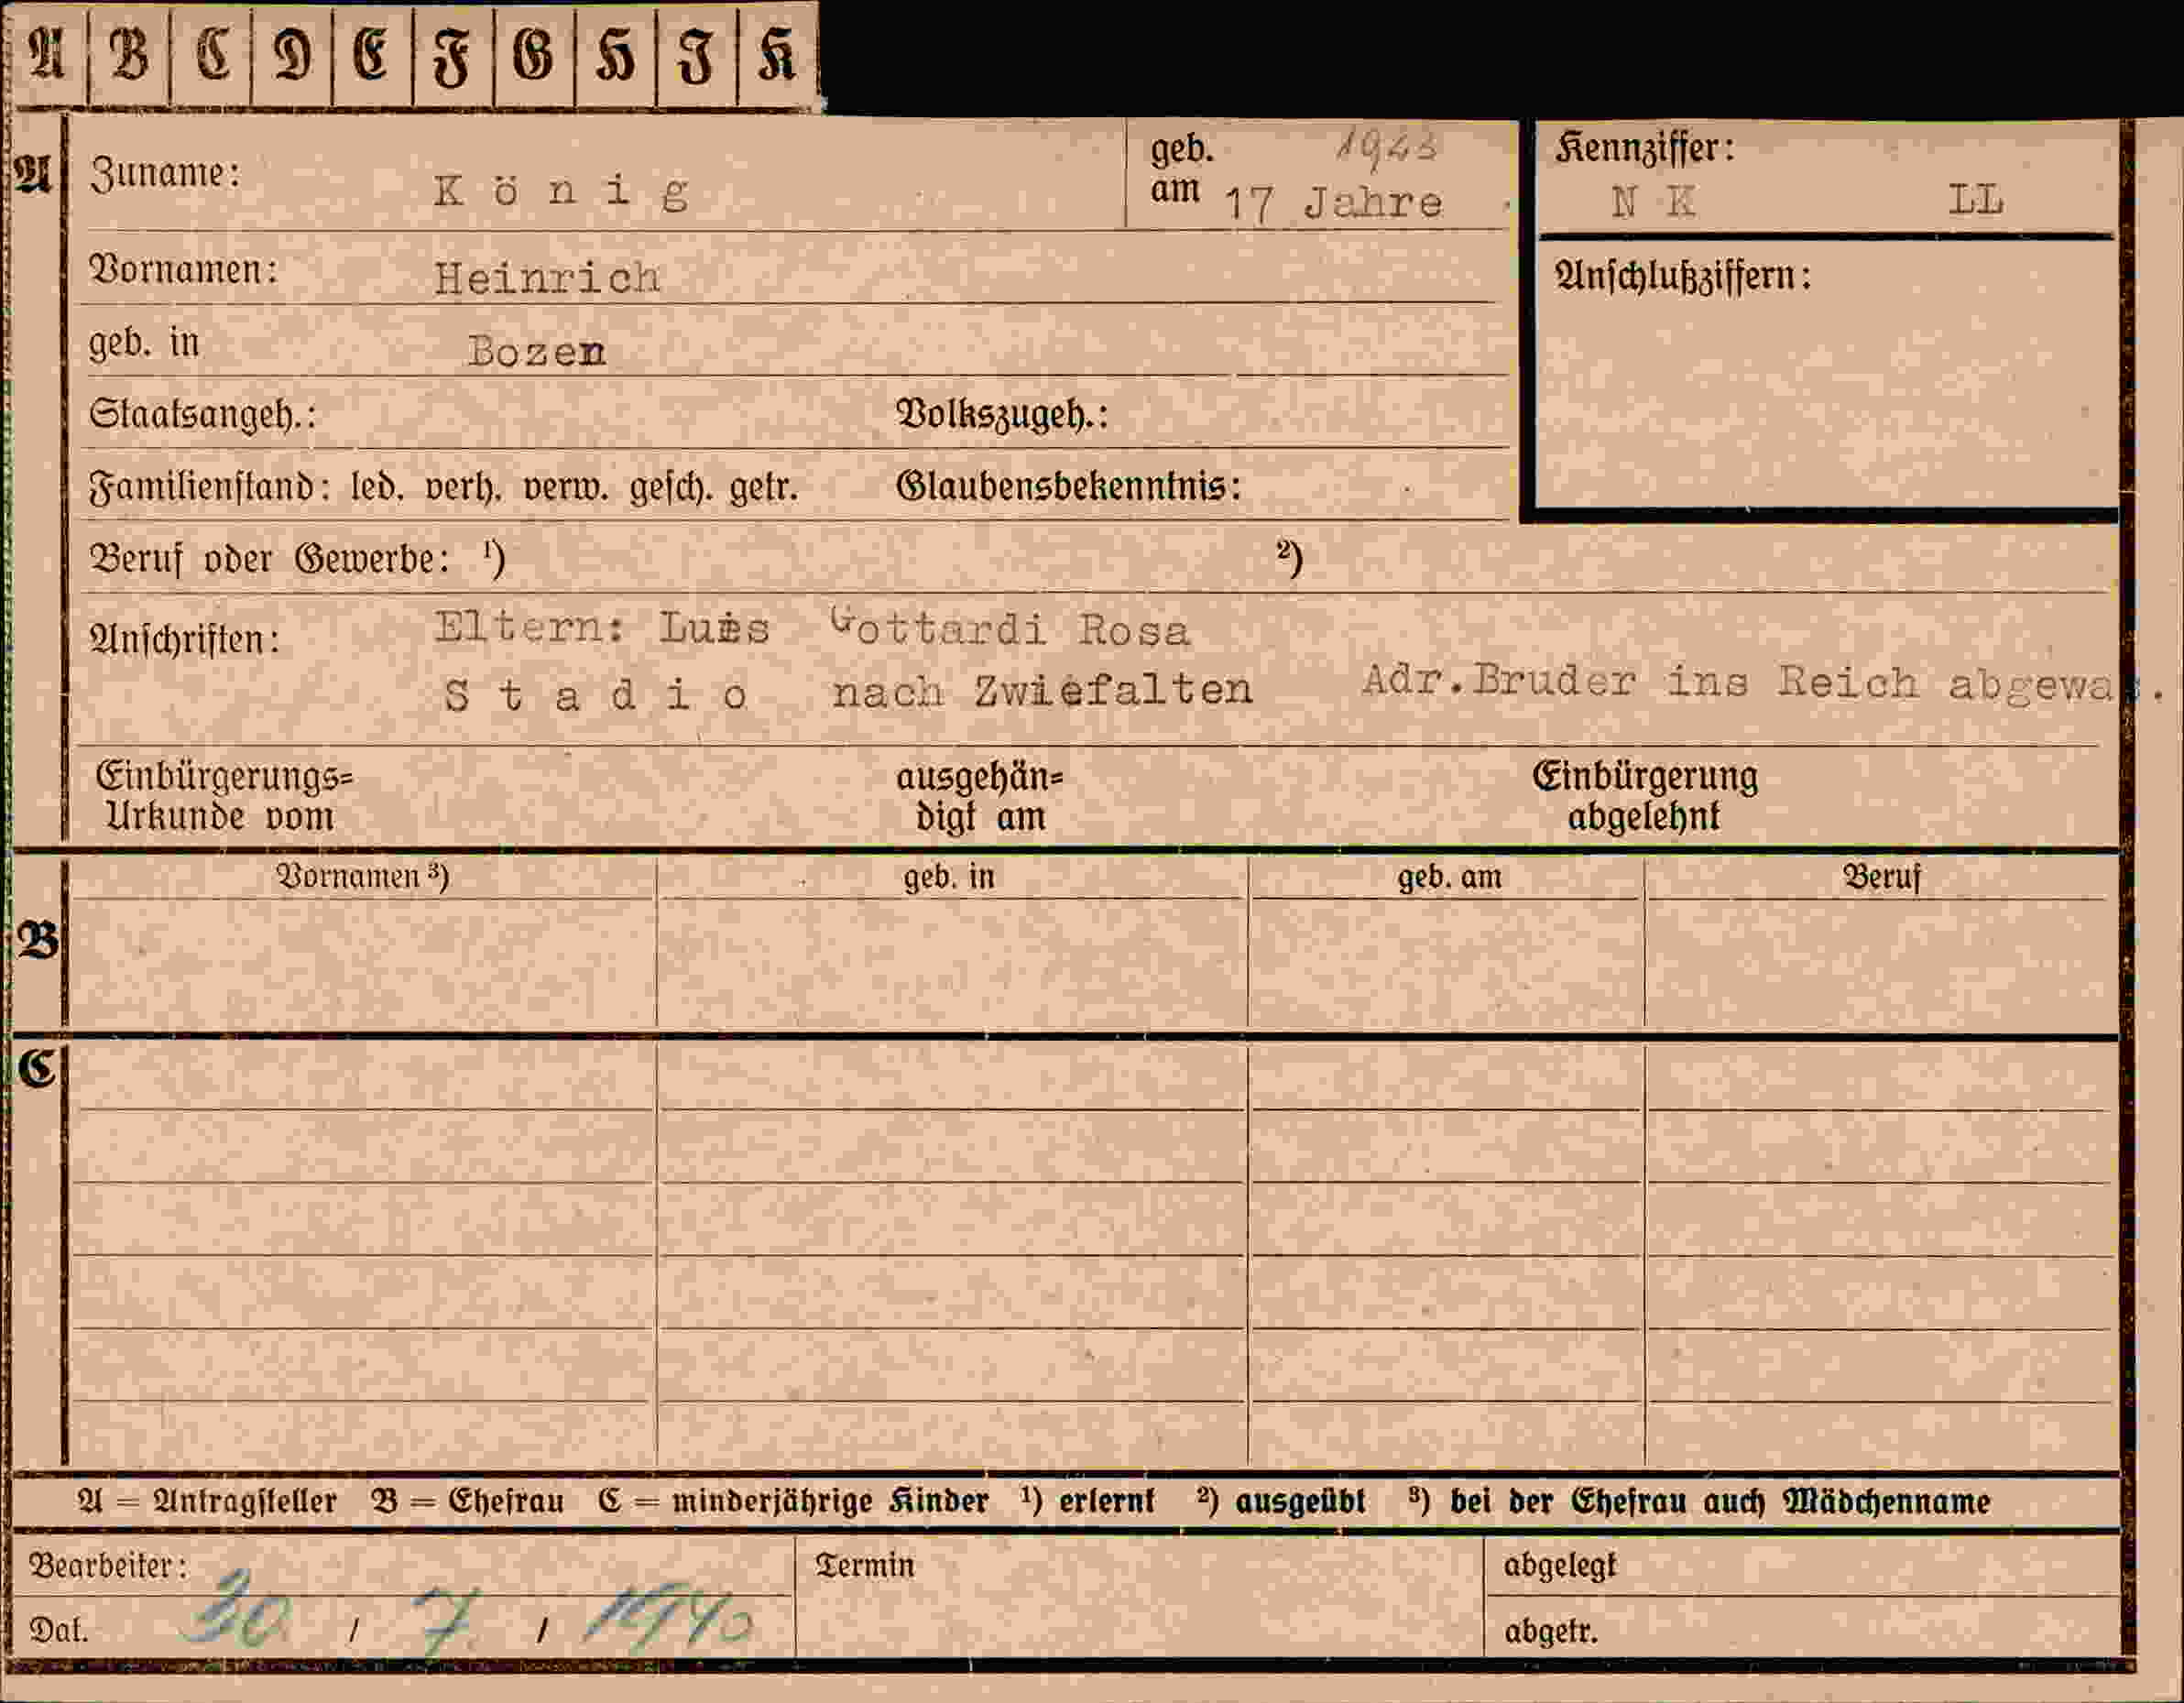 A B C D E F G H I K
A Zuname: K ö n i g geb. am 17 Jahre Kennziffer: N K LL
Vornamen: Heinrich Anschlußziffern:
geb. in Bozen
Staatsangeh.: Volkszugeh.:
Familienstand: led. verh. verw. gesch. getr. Glaubensbekenntnis:
Beruf oder Gewerbe: ¹) ²)
Anschriften: Eltern: Luis Gottardi Rosa
S t a d i o nach Zwiefalten Adr.Bruder ins Reich
Einbürgerungs=
Urkunde vom
ausgehän=
digt am
Einbürgerung
abgelehnt
Vornamen ³) geb. in geb. am Beruf
B
C
A = Antragsteller B = Ehefrau C = minderjährige Kinder ¹) erlernt ²) ausgeübt ³) bei der Ehefrau auch Mädchenname
Bearbeiter: Termin abgelegt
Dat. 30 / 7 / 1940 abgetr.